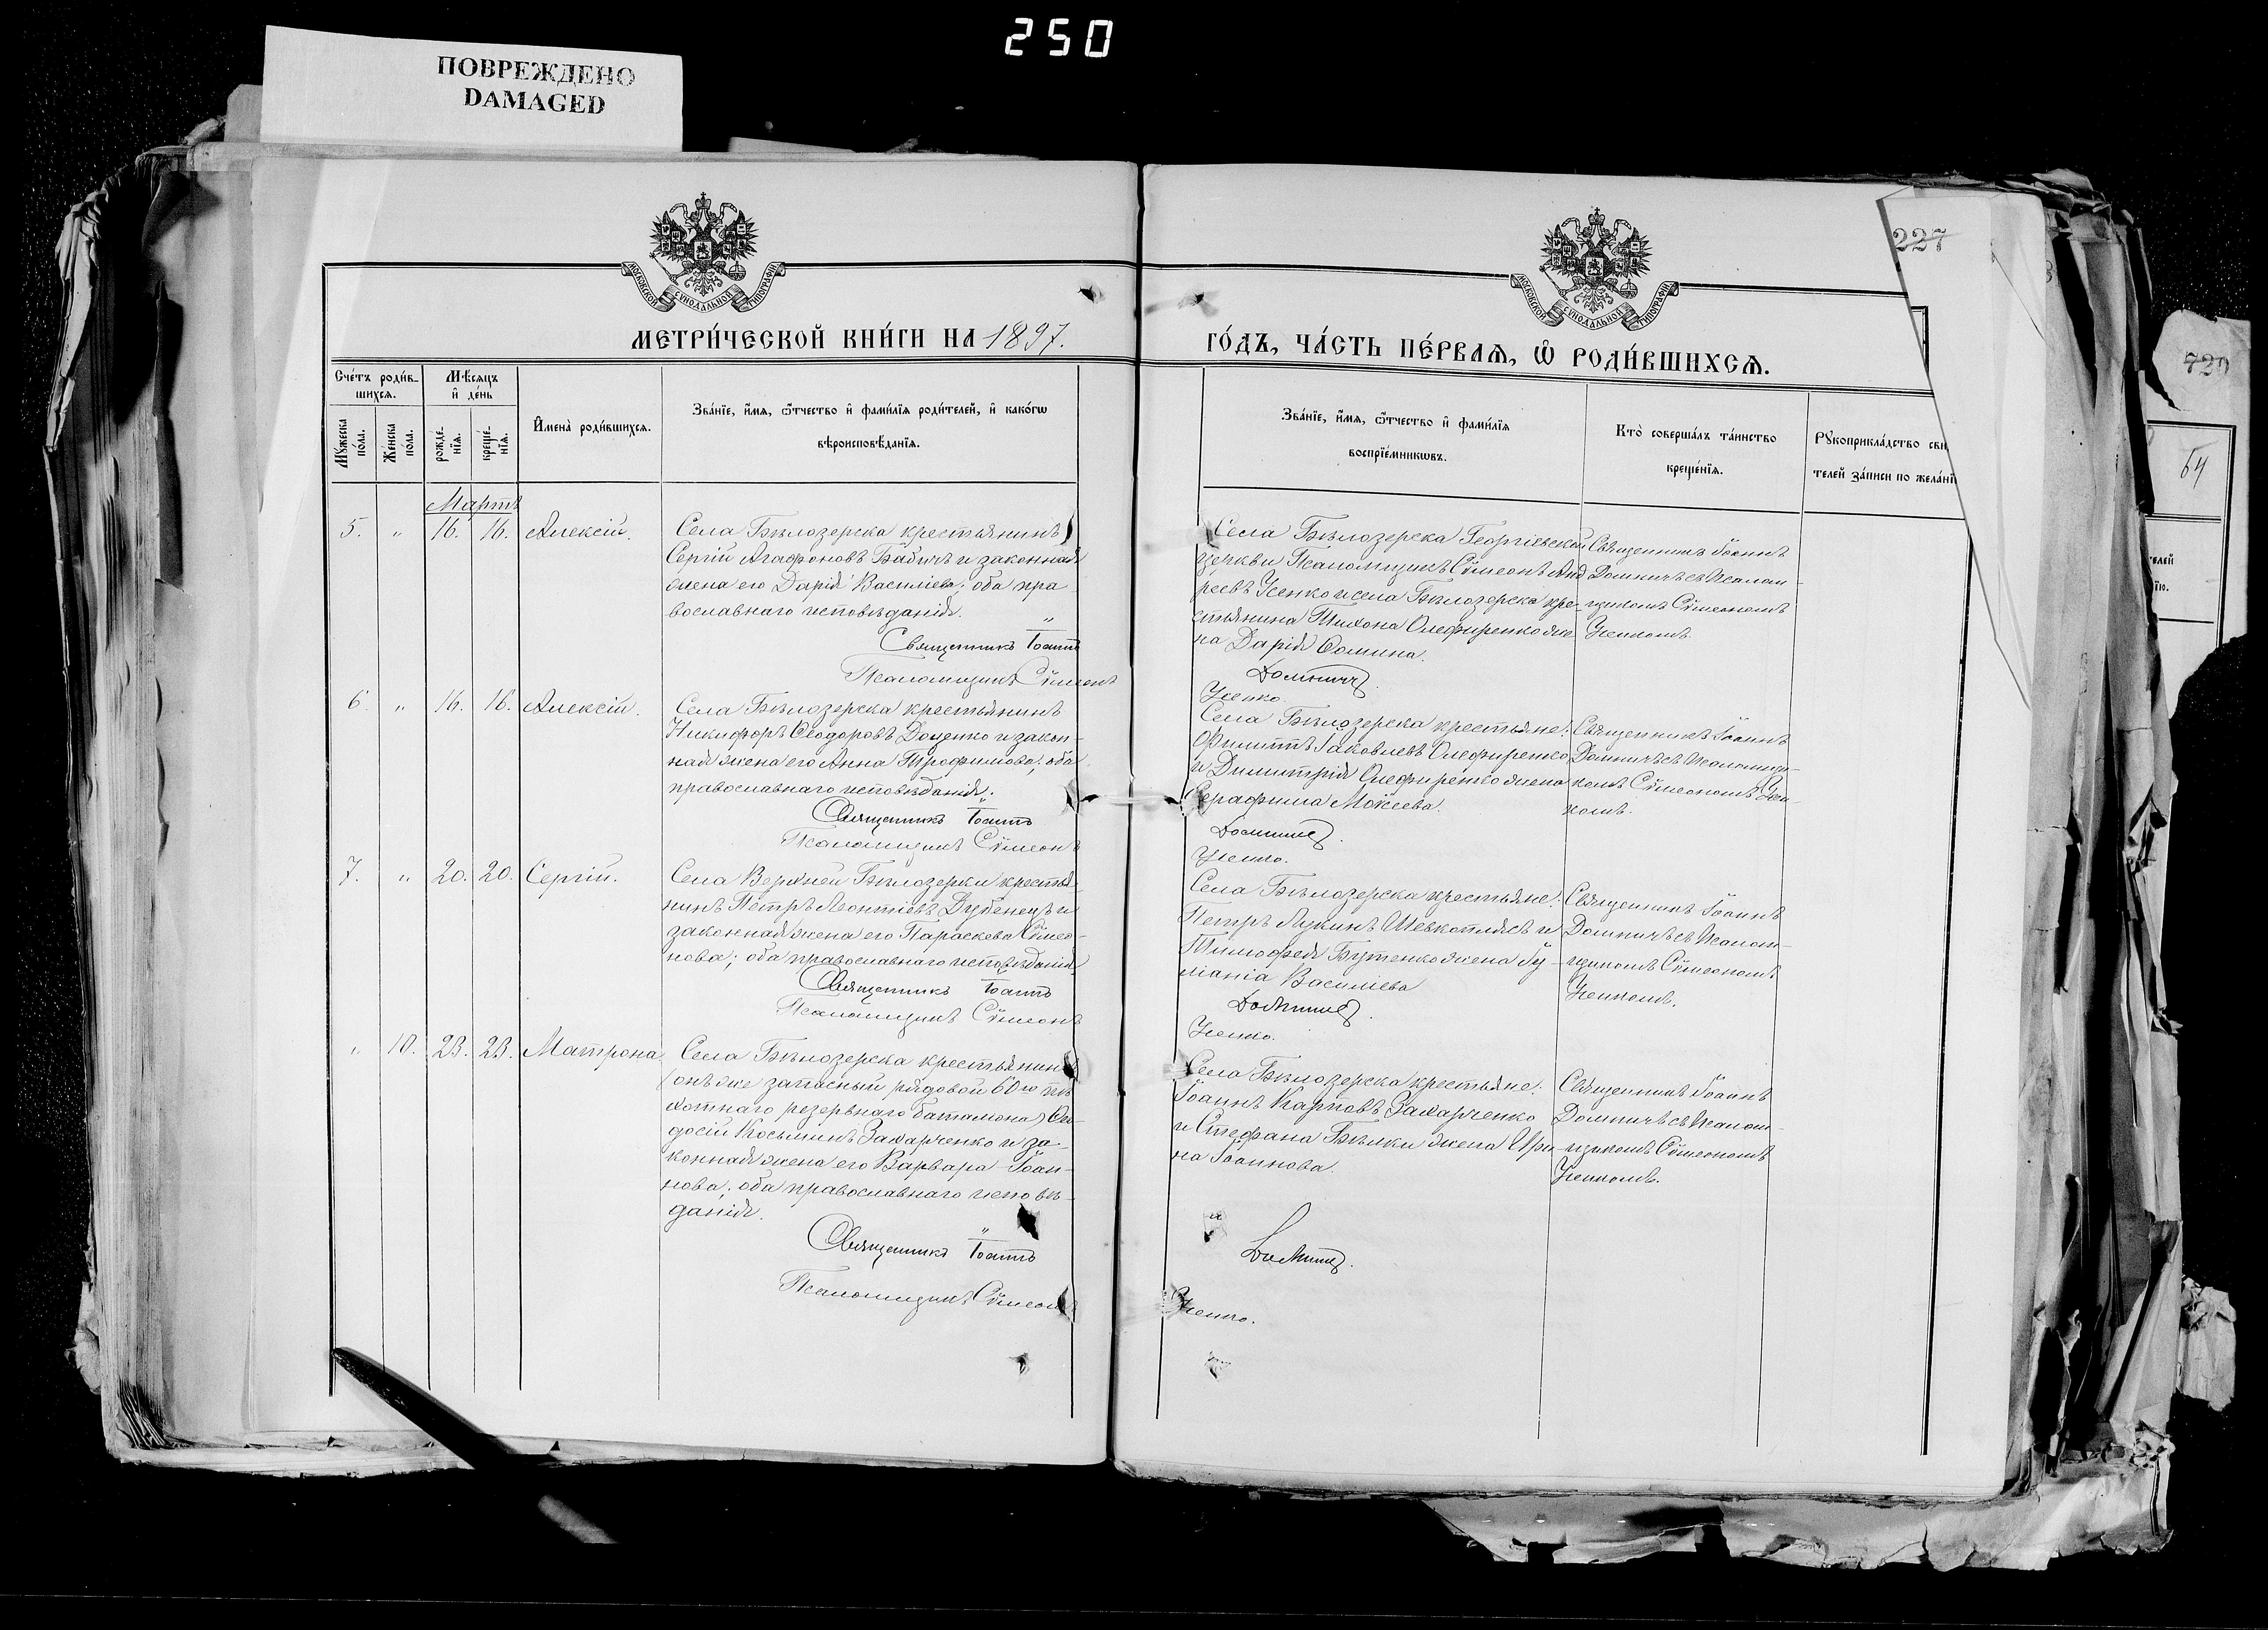 250
ПОВРЕЖДЕНО
DAMAGED
227
720
64
МОСКОВСКОЙ СѴНОДАЛЬНОЙ ТИПОГРАФІИ
МОСКОВСКОЙ СѴНОДАЛЬНОЙ ТИПОГРАФІИ
МЕТРИ́ЧЕСКОЙ КНИ́ГИ НА 1897.
ГО́ДЪ, ЧА́СТЬ ПЕ́РВАѦ, Ѽ РОДИ́ВШИХСѦ.
Сче́тъ роди́в-
шихсѧ.
Мѣсѧцъ
и҆ де́нь
Мꙋжеска
по́ла.
Же́нска
по́ла.
рожде́-
нїѧ.
креще́-
нїѧ.
И҆мена̀ роди́вшихсѧ.
Зва́нїе, и҆́мѧ, ѻ҆́тчество и҆ фами́лїѧ роди́телей, и҆ како́гѡ
вѣроисповѣ́данїѧ.
Зва́нїе, и҆́мѧ, ѻ҆́тчество и҆ фами́лїѧ
воспрїе́мникѡвъ.
Кто̀ соверша́лъ та́инство
креще́нїѧ.
Рꙋкоприкла́дство сви
телей за́писи по жела́нї
Мартъ
5. " 16. 16. Алексій.
Села Бѣлозерска крестьянинъ
Сергій Агафоновъ Бабичъ и законная
жена его Дарія Василіева; оба пра
вославнаго исповѣданія.
Священникъ Іоаннъ
Псаломщикъ Сѵмеонъ
Села Бѣлозерска Георгіевской
церкви Псаломщикъ Сѵмеонъ Анд
реевъ Усенко и села Бѣлозерска кре-
стьянина Тихона Олефиренко же
на Дарія Ѳомина.
Домничъ.
Усенко.
Священникъ Іоаннъ
Домничъ съ Псалом-
щикомъ Сѵмеономъ
Усенкомъ.
6. " 16. 16. Алексій.
Села Бѣлозерска крестьянинъ
Никифоръ Ѳеодоровъ Доценко и закон-
ная жена его Анна Трофимова; оба
православнаго исповѣданія.
Священникъ Іоаннъ
Псаломщикъ Сѵмеонъ
Села Бѣлозерска крестьяне:
Филиппъ Іаковлевъ Олефиренко
и Димитрія Олефиренко жена
Серафима Моисеева.
Домничъ.
Усенко.
Священникъ Іоаннъ
Домничъ съ Псаломщи-
комъ Сѵмеономъ Усен-
комъ.
7. " 20. 20. Сергій.
Села Верхней Бѣлозерки крестья-
нинъ Петръ Леонтіевъ Дубенецъ и
законная жена его Параскева Сѵмео-
нова; оба православнаго исповѣданія
Священникъ Іоаннъ
Псаломщикъ Сѵмеонъ
Села Бѣлозерска крестьяне:
Петръ Лукинъ Шевкоплясъ и
Тимофея Бутенко жена Іу-
ліанія Василіева
Домничъ.
Усенко.
Священникъ Іоаннъ
Домничъ съ Псалом-
щикомъ Сѵмеономъ
Усенкомъ.
" 10. 23. 23. Матрона
Села Бѣлозерска крестьянинъ
(онъ же запасный рядовой 60го пѣ
хотнаго резервнаго баталіона) Ѳео-
досій Косьминъ Захарченко и за-
конная жена его Варвара Іоан-
нова; оба православнаго исповѣ-
данія.
Священникъ Іоаннъ
Псаломщикъ Сѵмеонъ
Села Бѣлозерска крестьяне:
Іоаннъ Карповъ Захарченко
и Стефана Бѣлки жена Ири-
на Іоаннова.
Домничъ.
Усенко.
Священникъ Іоаннъ
Домничъ съ Псалом-
щикомъ Сѵмеономъ
Усенкомъ.